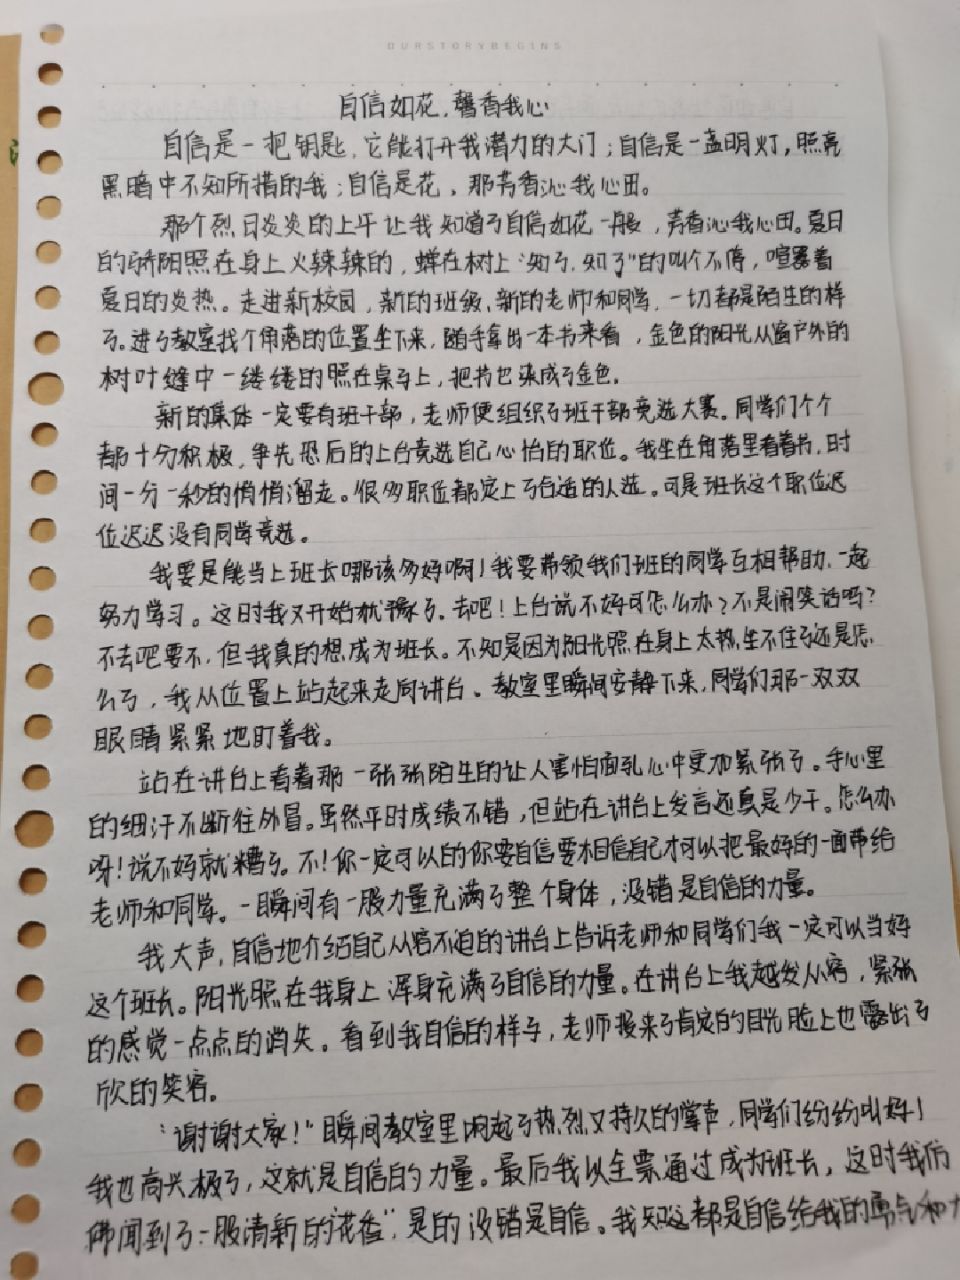 OURSTORYBEGINS
自信如花,馨香我心
自信是一把钥匙,它能打开我潜力的大门;自信是一盏明灯,照亮
黑暗中不知所措的我;自信是花,那芳香沁我心田。
那个烈日炎炎的上午让我知道了自信如花一般,芳香沁我心田。夏日
的骄阳照在身上火辣辣的,蝉在树上"知了,知了"的叫个不停,喧嚣着
夏日的炎热。走进新校园,新的班级、新的老师和同学,一切都是陌生的样
子。进了教室找个角落的位置坐下来,随手拿出一本书来看,金色的阳光从窗户外的
树叶缝中一缕缕的照在桌子上,把书也染成了金色。
新的集体一定要有班干部,老师便组织了班干部竞选大赛。同学们个个
都十分积极,争先恐后的上台竞选自己心怡的职位。我坐在角落里看着书,时
间一分一秒的悄悄溜走。很多职位都定上了合适的人选。可是班长这个职位迟
位迟迟没有同学竞选。
我要是能当上班长哪该多好啊!我要带领我们班的同学互相帮助,一起
努力学习。这时我又开始犹豫了。去吧!上台说不好可怎么办?不是闹笑话吗?
不去吧要不,但我真的想成为班长。不知是因为阳光照在身上太热,坐不住了还是怎
么了,我从位置上站起来走向讲台。教室里瞬间安静下来,同学们那一双双
眼睛紧紧地盯着我。
站在讲台上看着那一张张陌生的让人害怕面孔心中更加紧张了。手心里
的细汗不断往外冒。虽然平时成绩不错,但站在讲台上发言还真是少干。怎么办
呀!说不好就糟了。不!你一定可以的你要自信要相信自己才可以把最好的一面带给
老师和同学。一瞬间有一股力量充满了整个身体,没错是自信的力量。
我大声,自信地介绍自己从容不迫的讲台上告诉老师和同学们我一定可以当好
这个班长。阳光照在我身上浑身充满了自信的力量。在讲台上我越发从容,紧张
的感觉一点点的消失。看到我自信的样子,老师投来了肯定的目光脸上也露出了
欣的笑容。
"谢谢大家!"瞬间教室里响起了热烈又持久的掌声,同学们纷纷叫好!
我也高兴极了,这就是自信的力量。最后我以全票通过成为班长,这时我仿
佛闻到了一股清新的"花香",是的没错是自信。我知这都是自信给我的勇气和